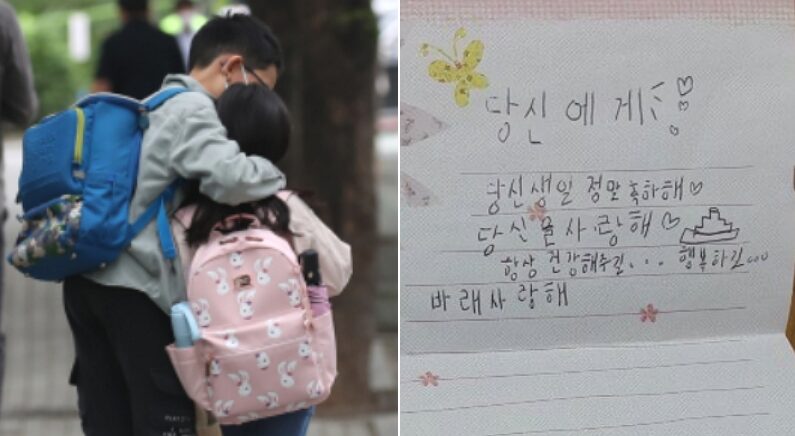 당신에게
당신생일 정말 축하해
당신을사랑해
항상 건강해주길... 행복하길...
바래사랑해